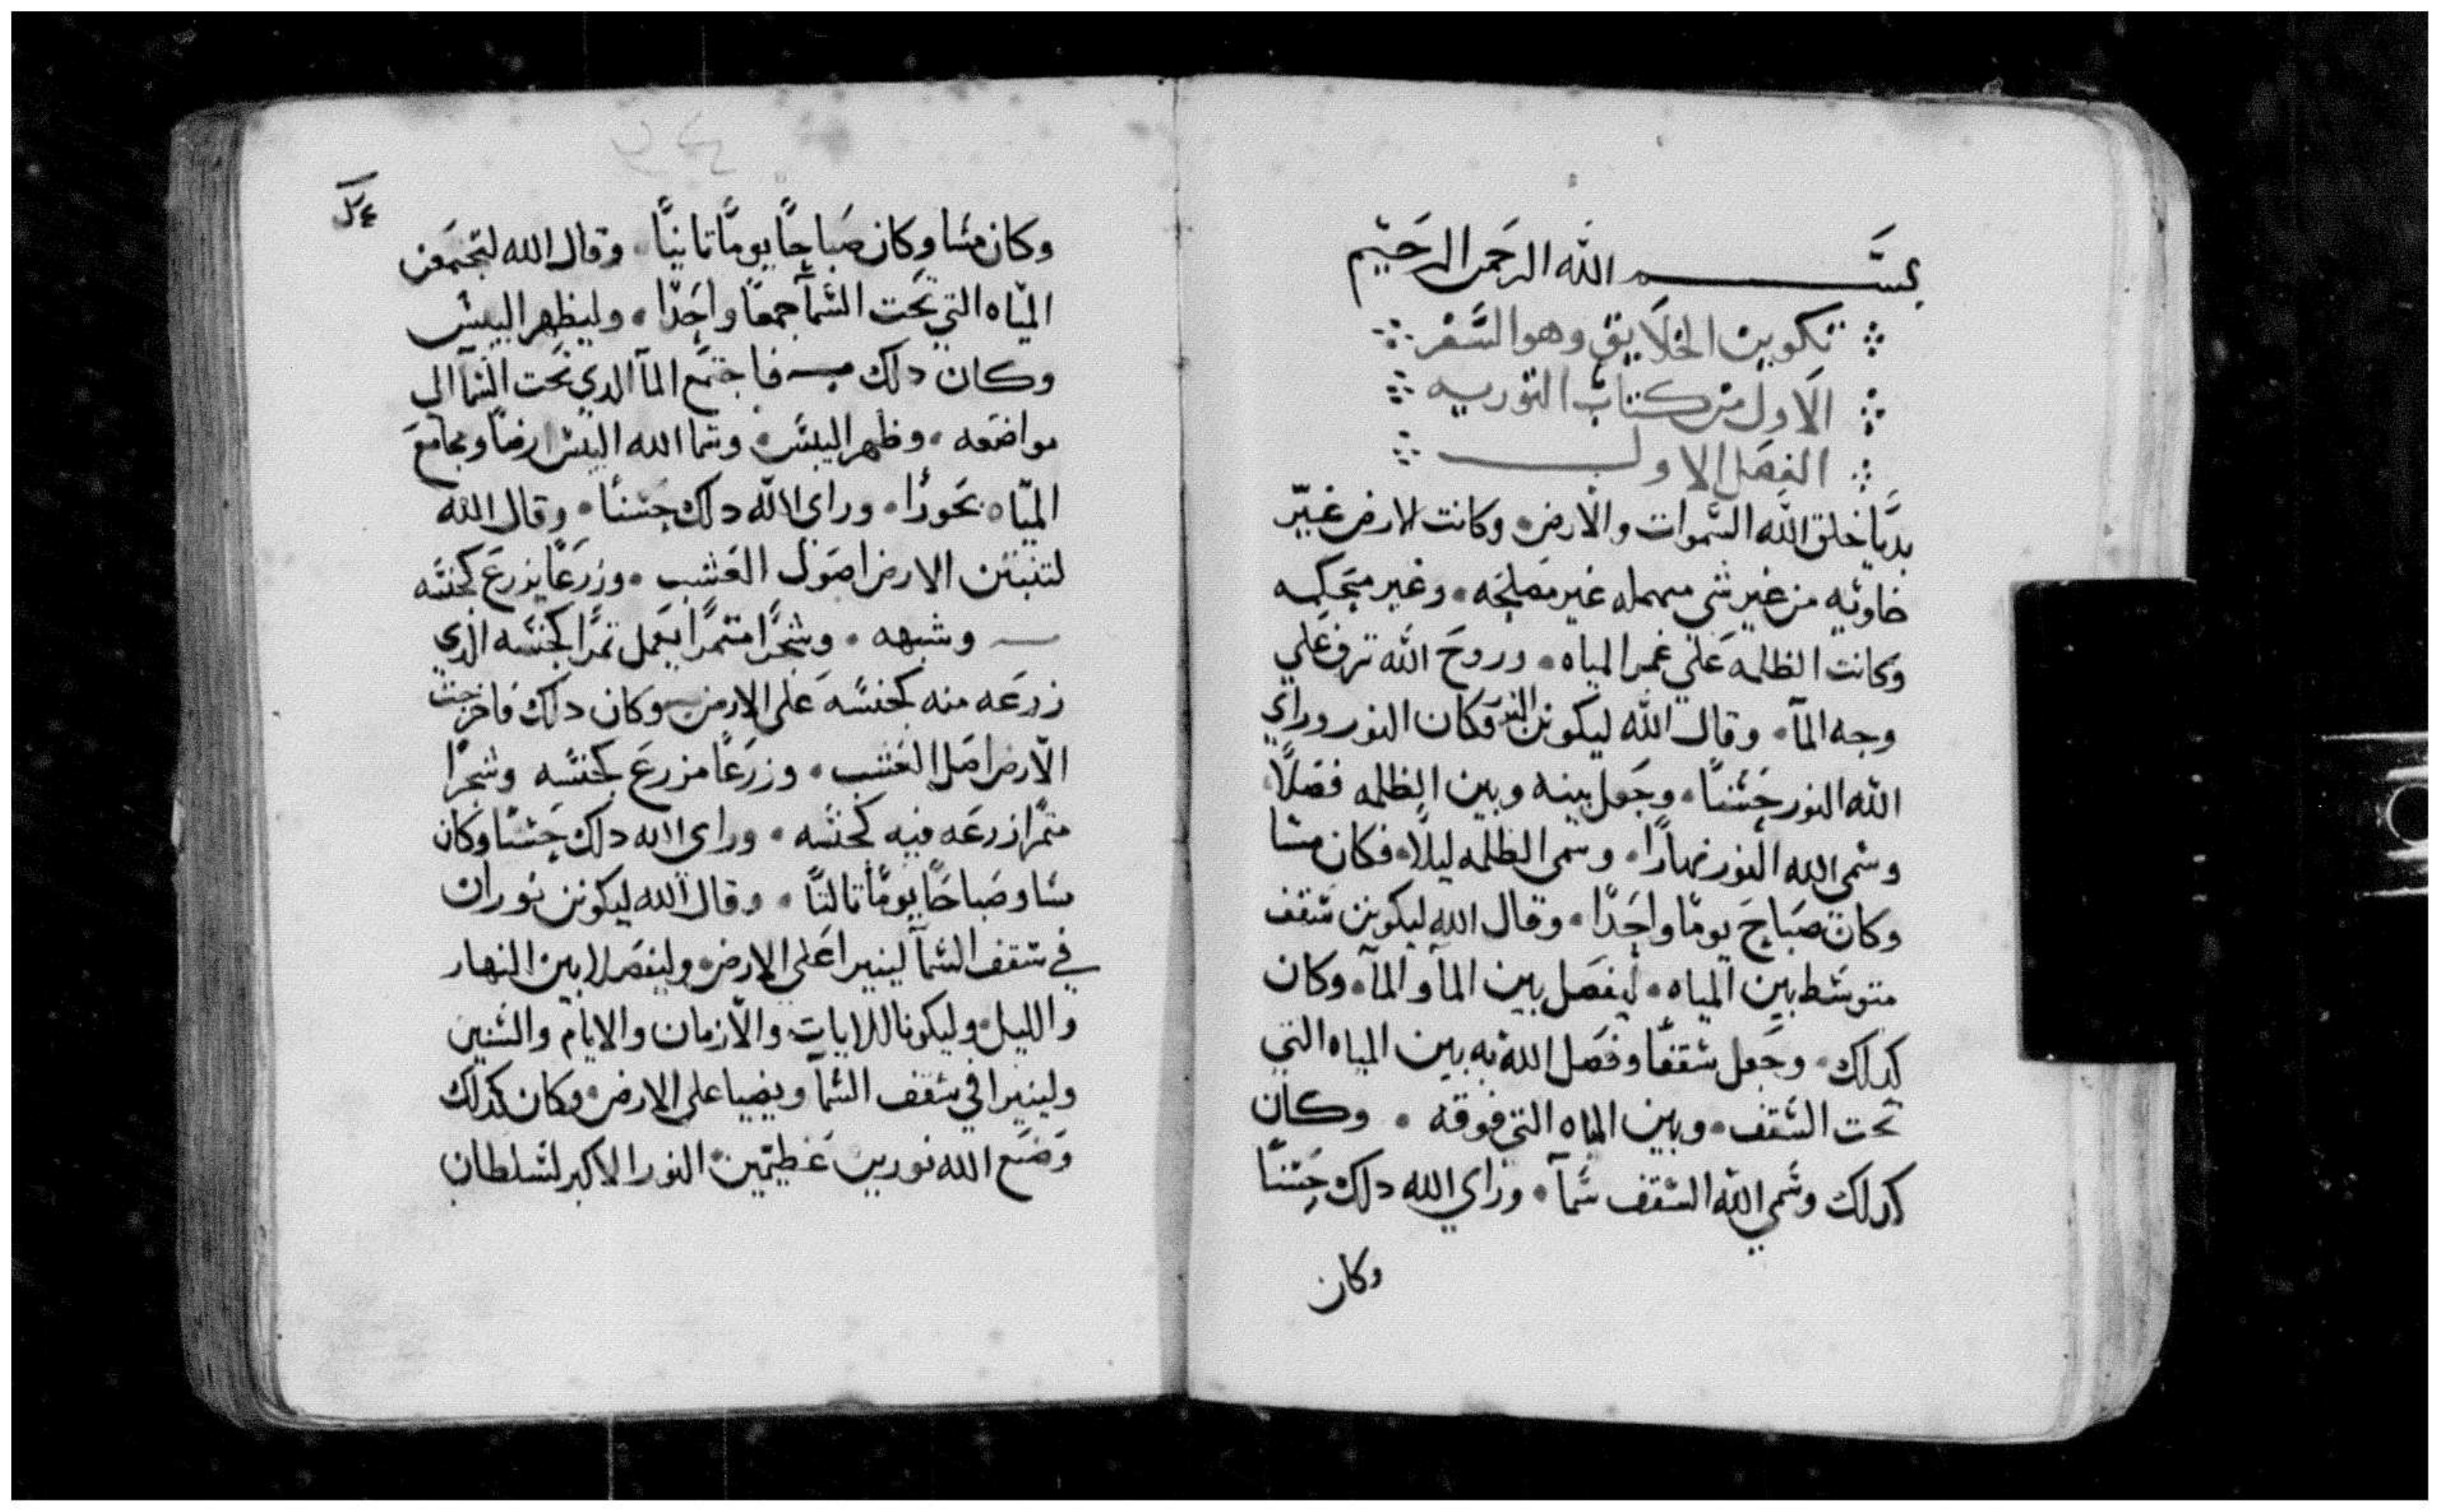 بســـم الله الرحمن الرحيم
تكوين الخلايق وهو السفر
الاول من كتاب التوريه
الفصل الاول
بديا خلق الله السموات والارض وكانت الارض غير
خاويه من غير شي مهمله غير مصلحه وغير متحكمه
وكانت الظلمه علي غمر المياه وروح الله ترف علي
وجه المآ وقال الله ليكونن النور فكان النور وراي
الله النور حسنًا وجعل بينه وبين الظلمه فصلًا
وسمى الله النور نهارًا وسمى الظلمه ليلًا فكان مسا
وكان صباح يومًا واحدًا وقال الله ليكونن سقف
متوسط بين المياه ليفصل بين المآ والمآ وكان
كدلك وجعل سقفًا وفصل الله به بين المياه التي
تحت السقف وبين المياه التي فوقه وكان
كدلك وسمي الله السقف سمآ وراي الله دلك حسنًا
وكان
وكان مسا وكان صباحًا يومًا تانيًا وقال الله لتجتمعن
المياه التي تحت السمآ جمعًا واحدًا وليظهر اليبس
وكان دلك فاجتمع المآ الدي تحت السمآ الى
مواضعه وظهر اليبس وسما الله اليبس ارضًا ومجامع
المياه بحورًا وراي الله دلك حسنًا وقال الله
لتنبتن الارض اصول العشب وزرعًا يزرع كجنسه
وشبهه وشجرًا متمرًا يعمل تمرًا كجنسه الذي
زرعه منه كجنسه على الارض وكان دلك فاخرجت
الارض اصل العشب وزرعًا مزرع كجنسه وشجرًا
متمرًا زرعه فيه كجنسه وراى الله دلك حسنًا وكان
مسا وصباحًا يومًا تالتًا وقال الله ليكونن نوران
في سقف السمآ لينيرا على الارض وليفصلا بين النهار
والليل وليكونا للايات والازمان والايام والسنين
ولينيرا في سقف السمآ ويضيا على الارض وكان كدلك
وصنع الله نورين عظيمين النور الاكبر لسلطان